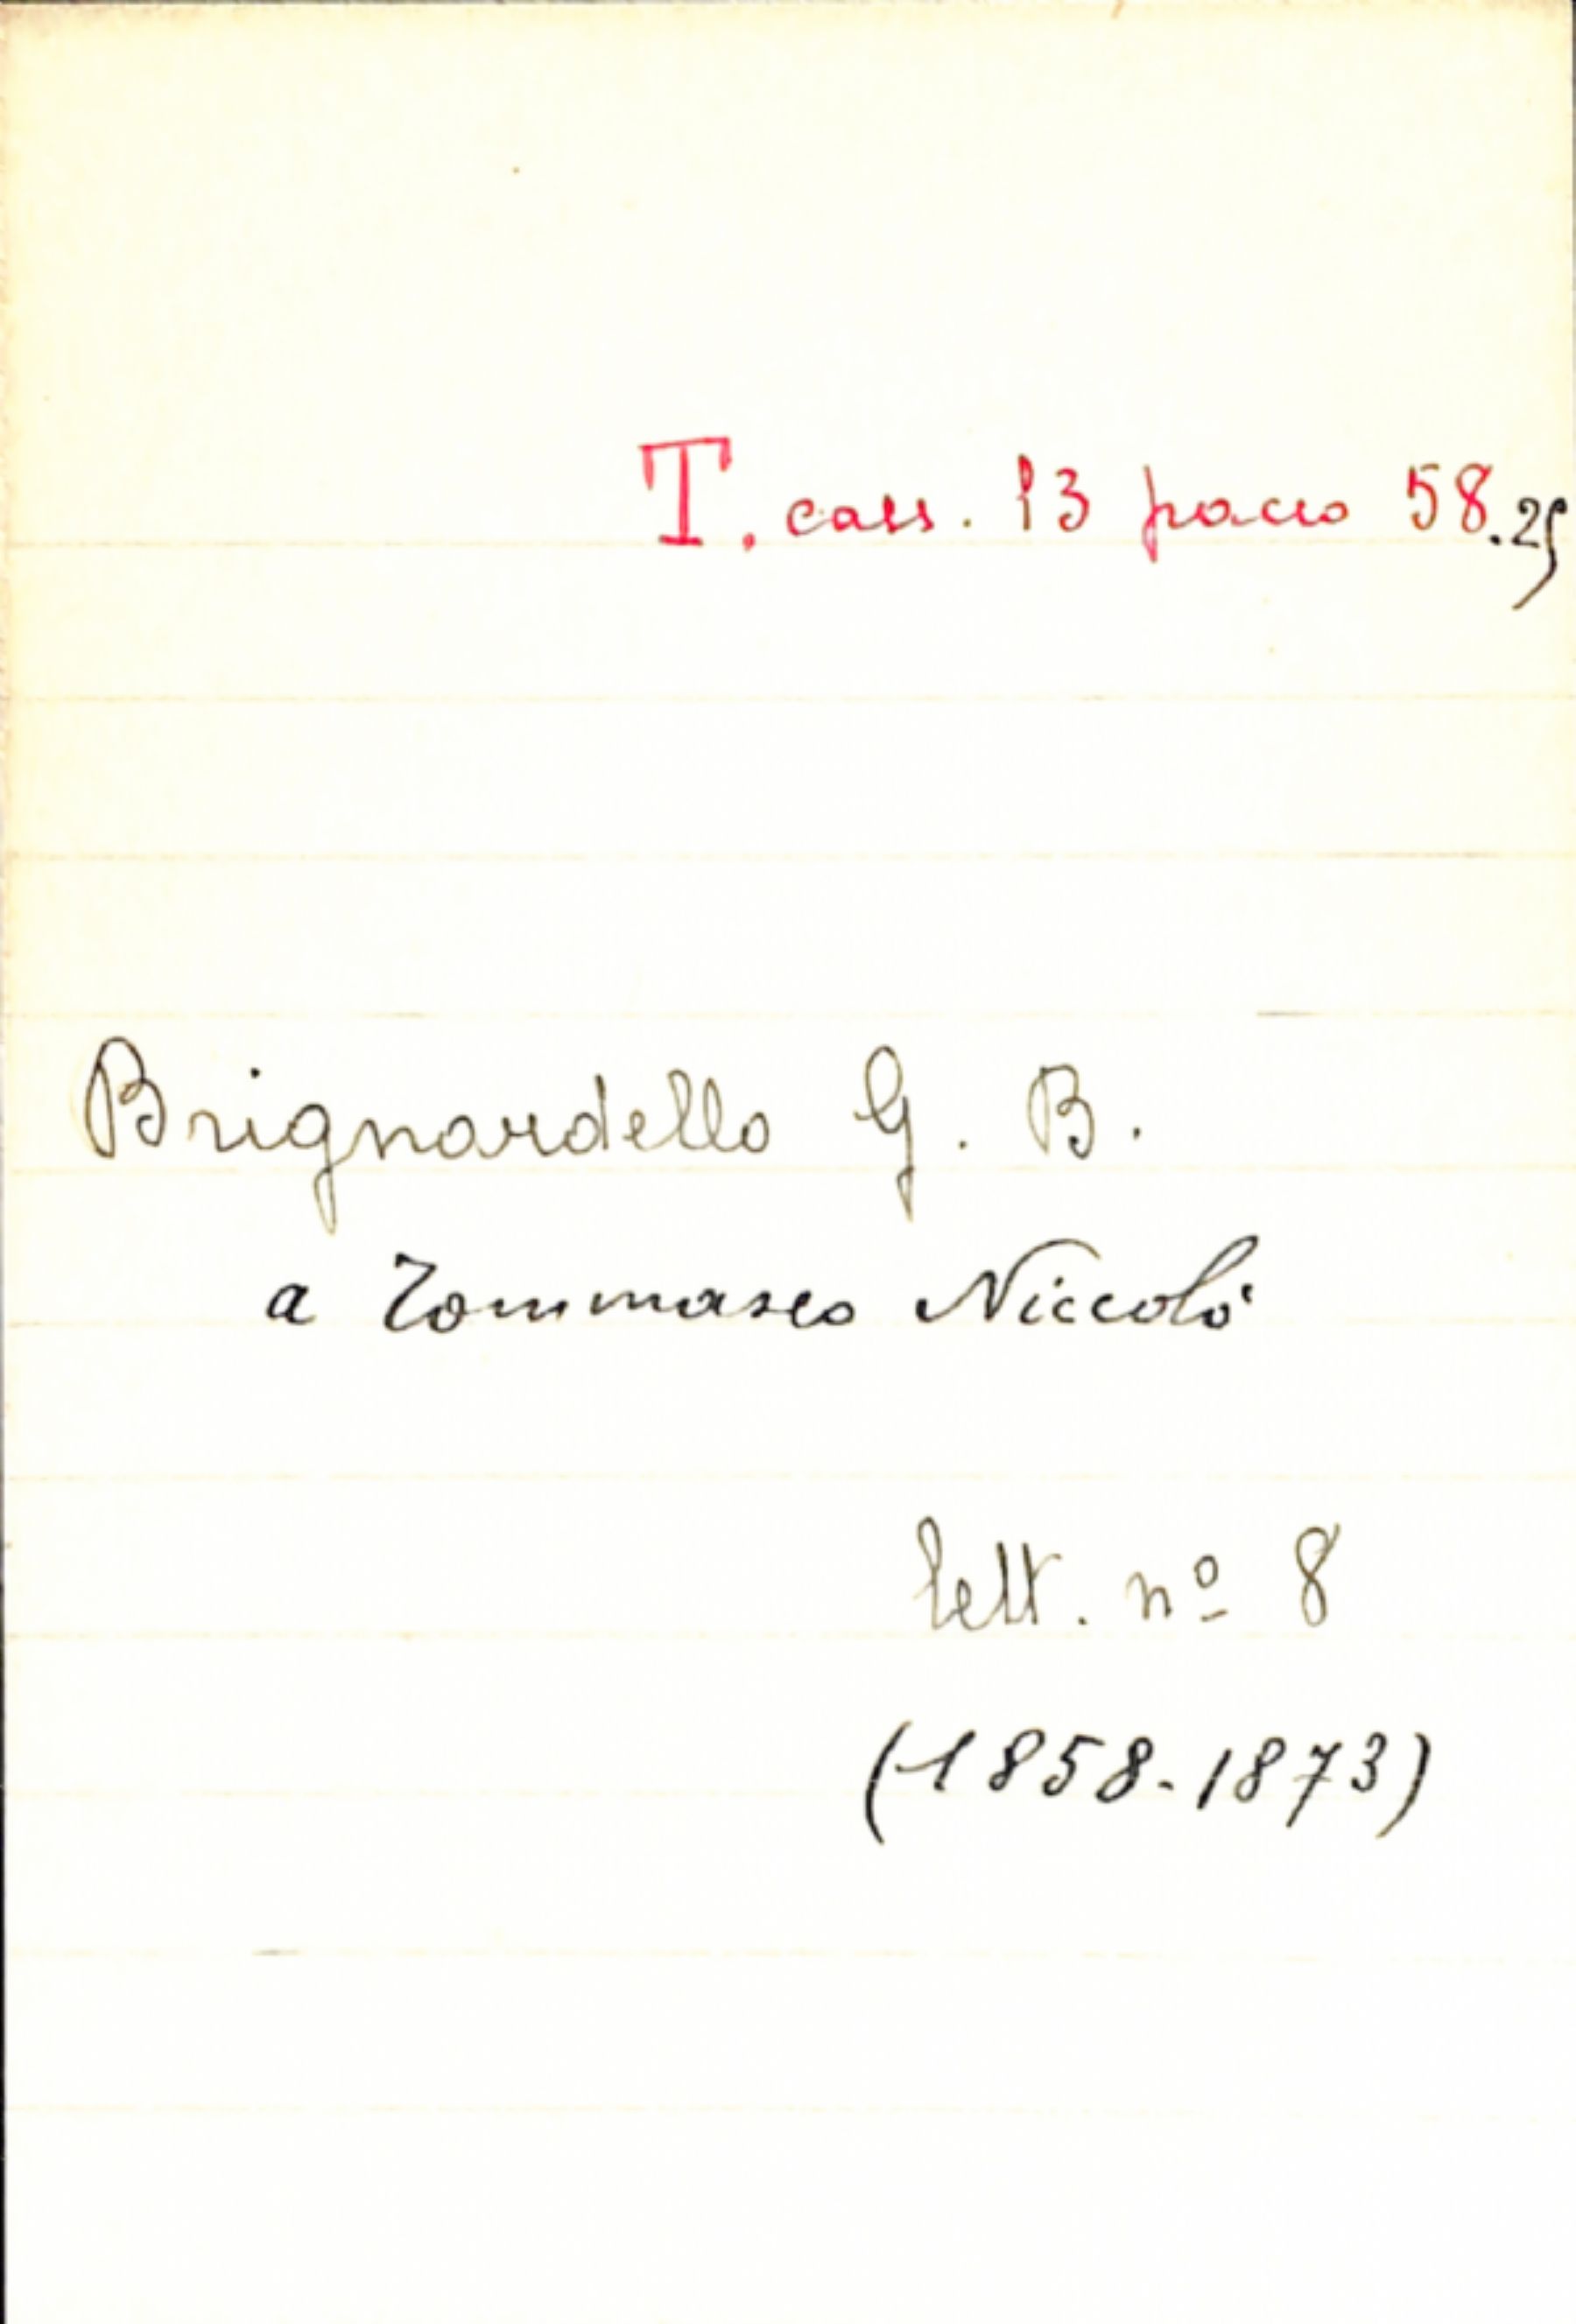 T. cass. 13 pacco 58.25
Brignardello G. B.
a Tommaseo Niccolò
lett. nº 8
(1858-1873)